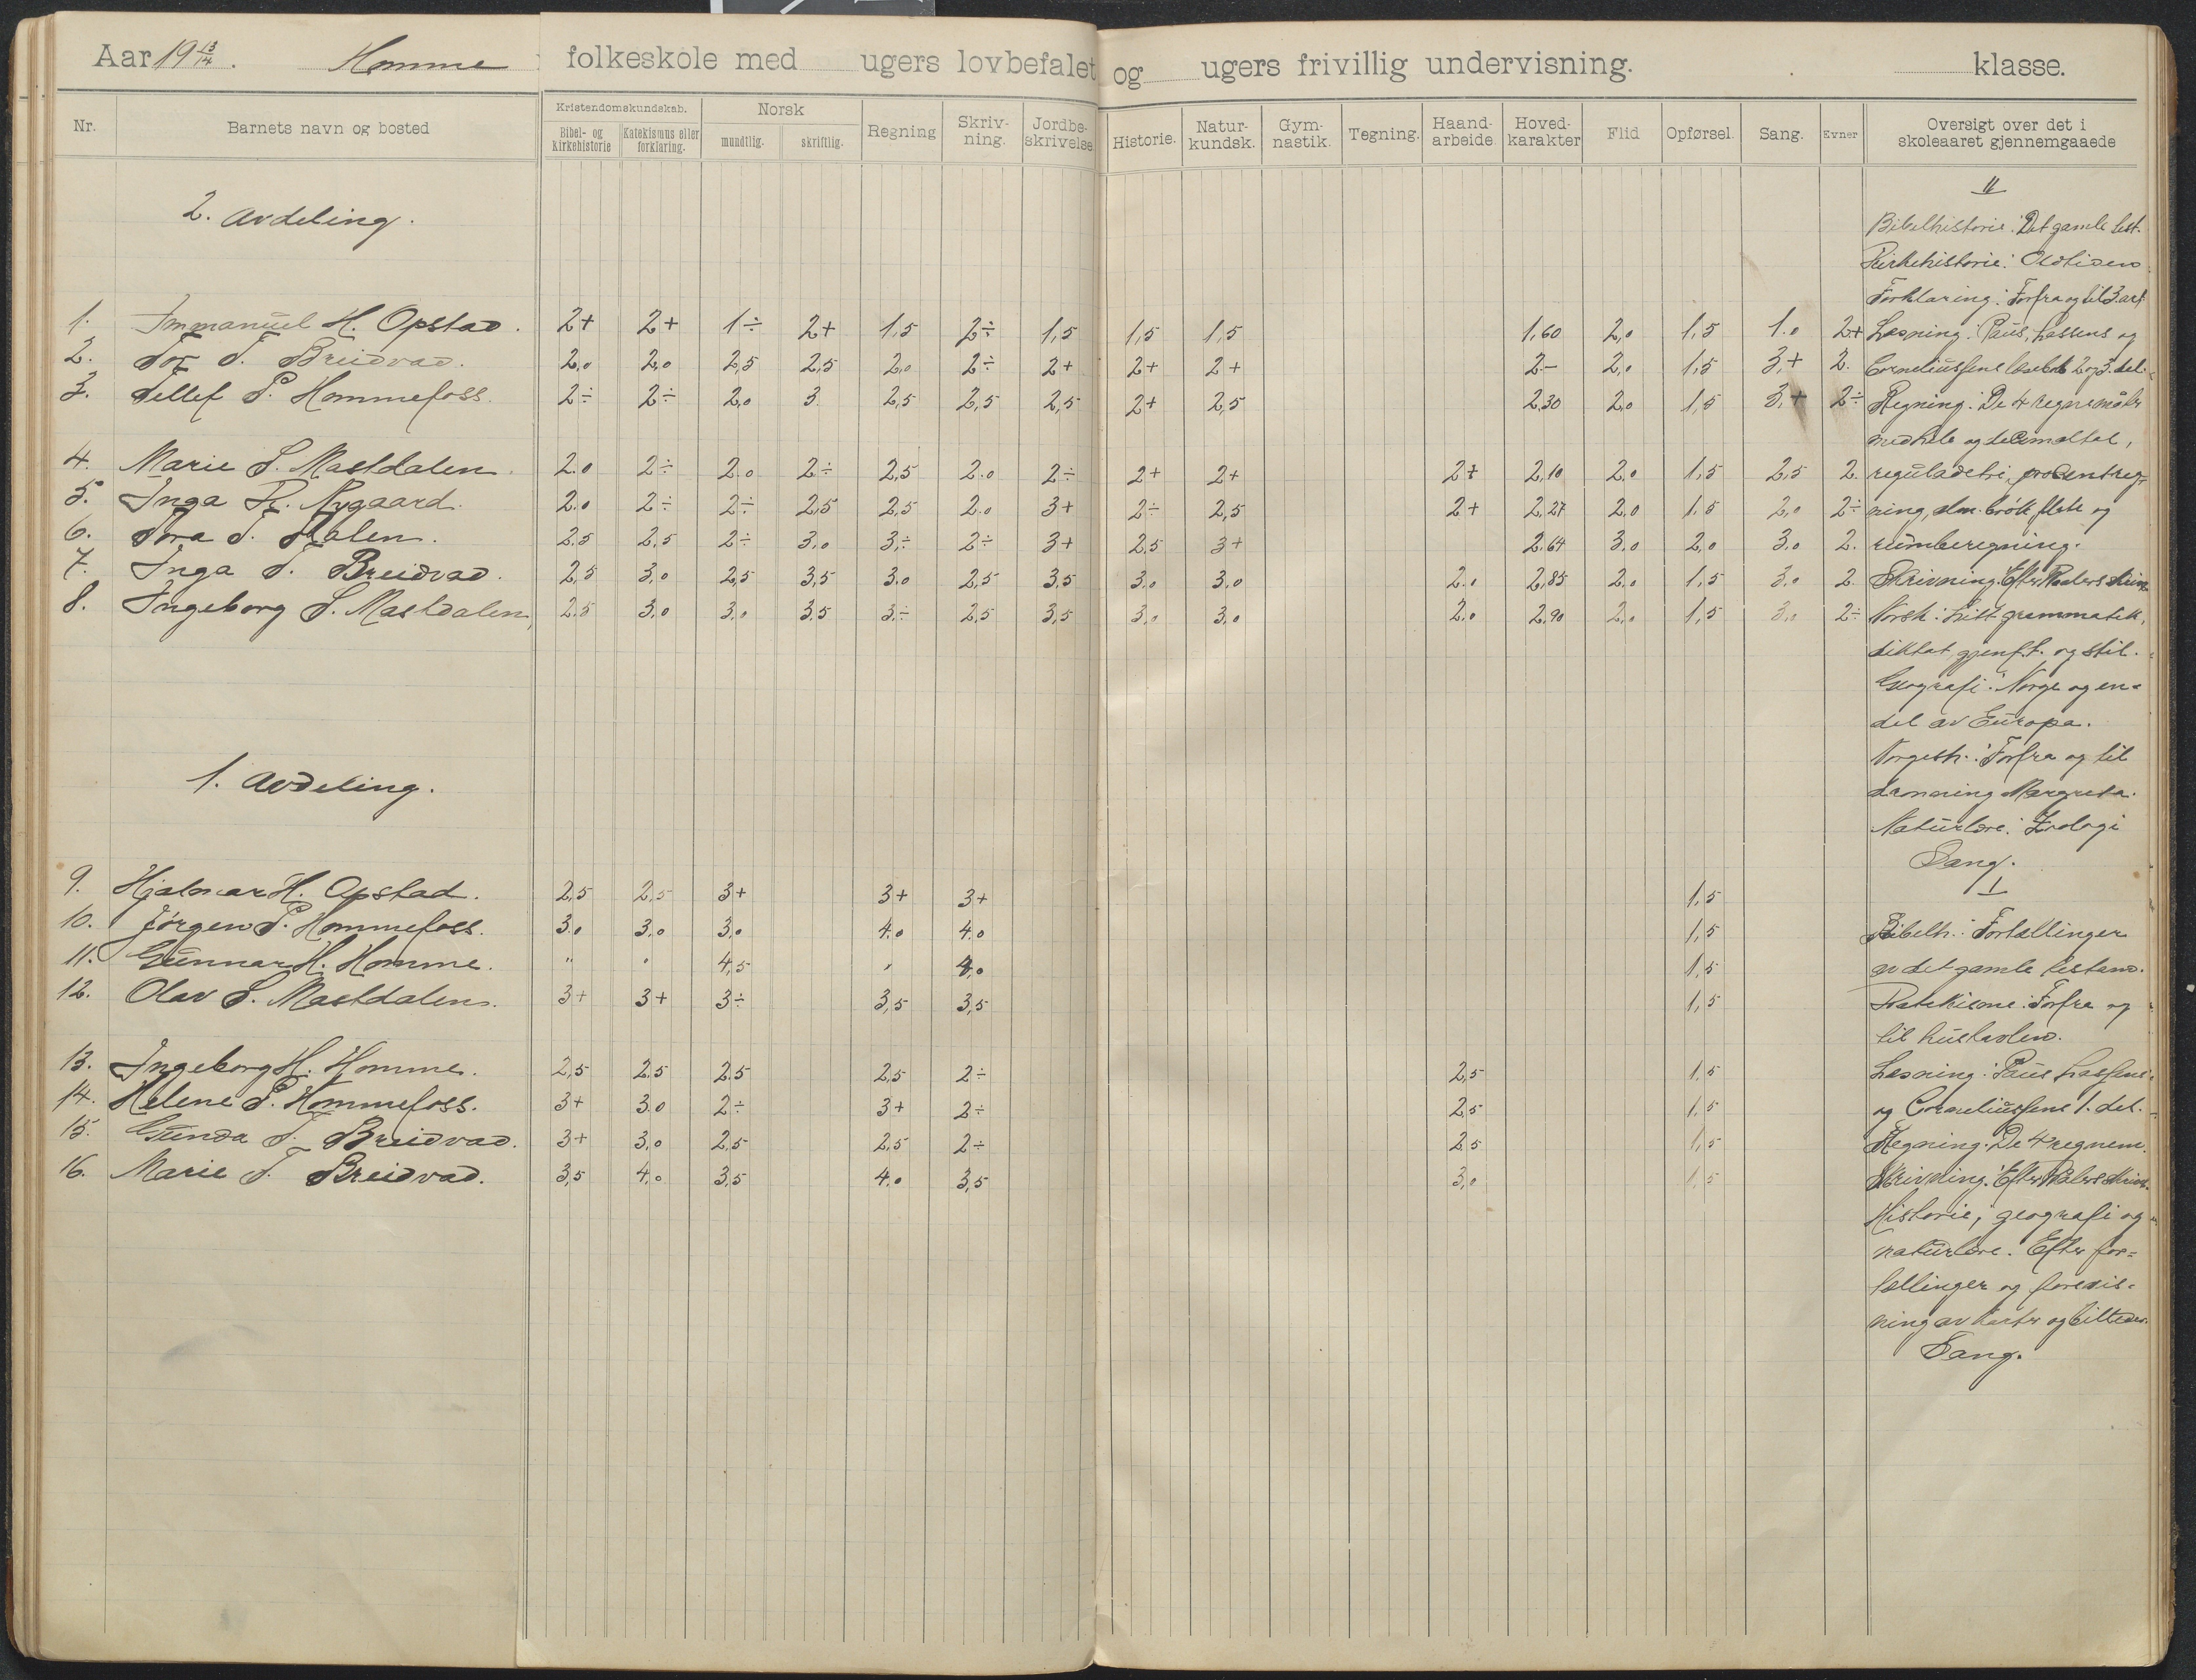 Aar 19 13/14. Homme folkeskole med ugers lovbefalet og ugers frivillig undervisning. klasse.
Nr. Barnets navn og bosted Kristendomskundskab. Bibel- og Kirkehistorie Katekismus eller forklaring. Norsk mundtlig. skriftlig. Regning Skrivning. Jordbeskrivelse Historie. Naturkundsk. Gymnastik. Tegning. Haandarbeide. Hovedkarakter Flid Opførsel. Sang. Evner Oversigt over det i skoleaaret gjennemgaaede
2. Avdeling.
1. Immanuel H. Opstad. 2+ 2+ 1÷ 2+ 1,5 2÷ 1,5 1,5 1,5 1,60 2,0 1,5 1.0 2+
2. Tor T. Breidvad. 2,0 2,0 2,5 2,5 2,0 2÷ 2+ 2+ 2+ 2- 2,0 1,5 3,+ 2.
3. Tellef P. Hommefoss. 2÷ 2÷ 2,0 3. 2,5 2,5 2,5 2+ 2,5 2,30 2,0 1,5 3,+ 2÷
4. Marie S. Mastdalen. 2.0 2÷ 2.0 2÷ 2,5 2.0 2÷ 2+ 2+ 2+ 2,10 2,0 1,5 2,5 2.
5. Inga Nygaard. 2.0 2÷ 2÷ 2,5 2,5 2.0 3+ 2÷ 2,5 2+ 2,27 2,0 1.5 2,0 2÷
6. Tora T. Dalen. 2.5 2,5 2÷ 3,0 3,÷ 2÷ 3+ 2,5 3+ 2.64 3,0 2,0 3,0 2.
7. Inga T. Breidvad. 2,5 3,0 2,5 3,5 3.0 2,5 3,5 3.0 3.0 2.0 2,85 2.0 1,5 3.0 2
8. Ingeborg S. Mastdalen, 2,5 3,0 3,0 3,5 3÷ 2,5 3,5 3,0 3,0 2.0 2.90 2,0 1,5 3,0 2÷
1. Avdeling.
9. Hjalmar H. Opstad. 2,5 2,5 3+ 3+ 3+ 1,5
10. Jørgen P. Hommefoss. 3.0 3,0 3,0 4.0 4.0 1,5
11. Gunnar H. Homme. " " 4,5 " 4,0 1,5
12. Olav S. Mastdalen. 3+ 3+ 3÷ 3,5 3,5 1,5
13. Ingeborg H. Homme. 2,5 2,5 2.5 2,5 2÷ 2,5 1,5
14. Helene P. Hommefoss. 3+ 3.0 2÷ 3+ 2÷ 2,5 1,5
15. Gunda T. Breidvad. 3+ 3,0 2,5 2,5 2÷ 2,5 1,5
16. Marie T. Breidvad. 3,5 4,0 3,5 4.0 3,5 3,0 1,5
II
Bibelhistorie: Det gamle test.
Kirkehistorie: Oldtiden
Forklaring: Forfra og til 3. art
Læsning: Paus, Lassens og
Corneliussens læsebok 2 og 3. del.
Regning: De 4 regnemåter
med hele og decimaltal,
reguladetri, procentreg-
ning, alm. brøk flate og
rumberegning.
Skrivning: Efter Raaders skrivn.
Norsk: Litt grammatik,
diktat, gjenf.t. og stil.
Geografi: Norge og en-
del av Europa.
Norgesh.: Forfra og til
dronning Margreta.
Naturlære: Zoologi
Sang.
I
Bibelh.: Fortællinger
av det gamle testam.
Katekisme: Forfra og
til hustavlen.
Læsning: Paus Lassens
og Corneliussens 1. del.
Regning: De 4 regnem.
Skrivning: Efter Raaders skrivn.
Historie, geografi og
naturlære. Efter for-
tællinger og forevis-
ning av karter og billeder.
Sang.